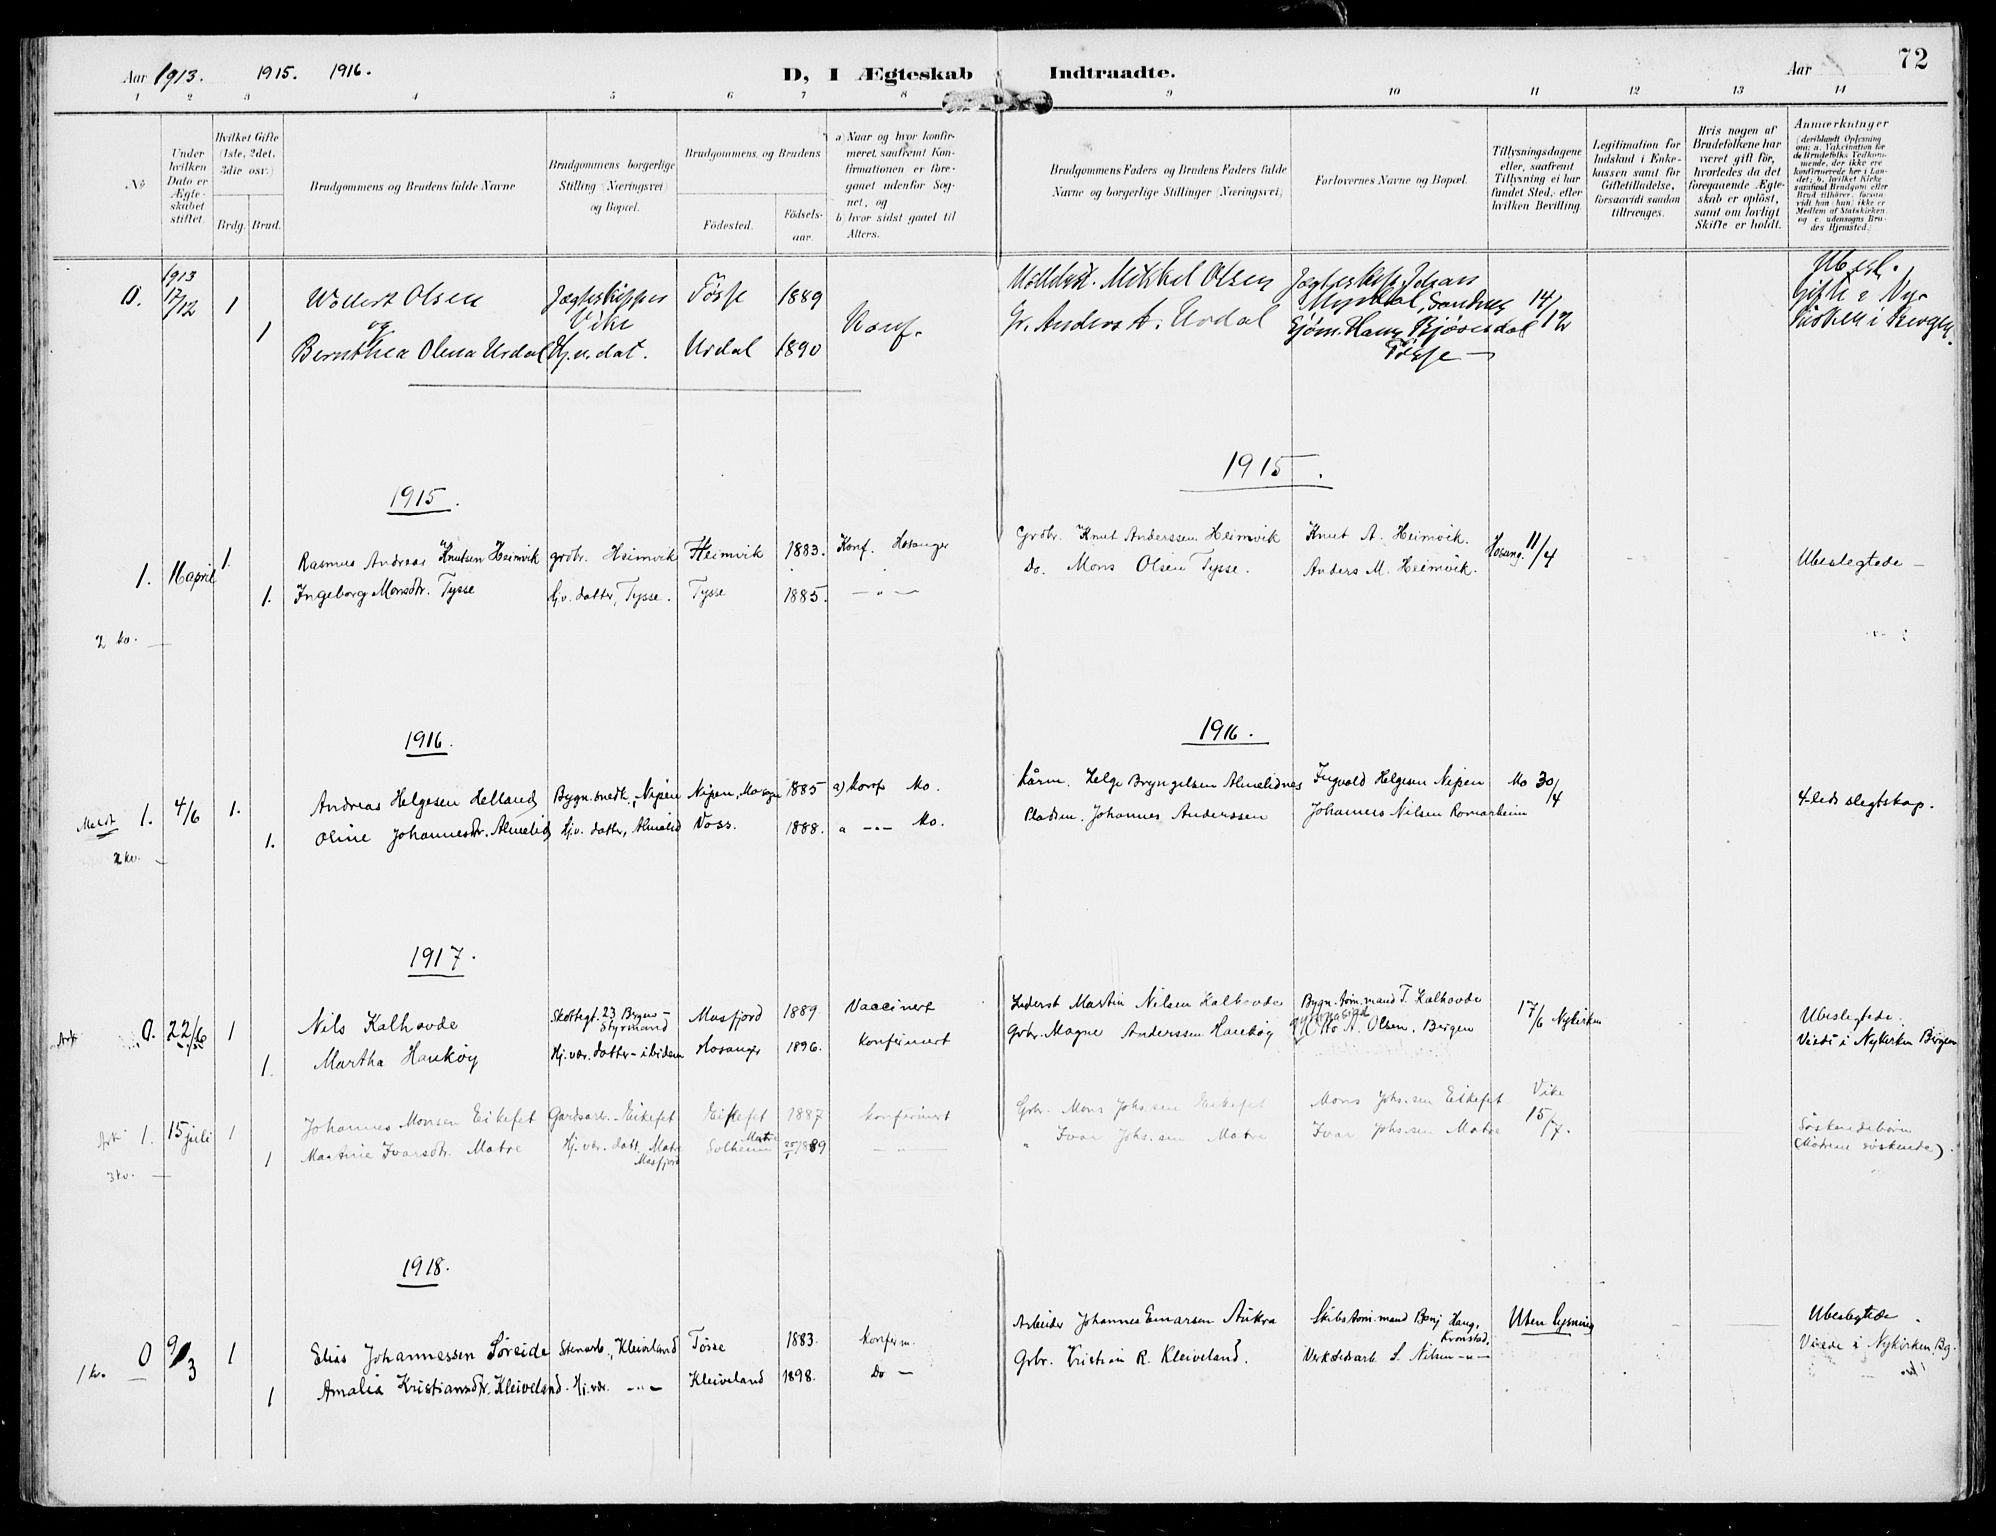 Aar 1913. 1915. 1916.
D, I Ægteskab Indtraadte.
Aar
72
1 2 3 4 5 6 7 8 9 10 11 12 13 14
No
Under hvilken Dato er Ægteskabet stiftet.
Hvilket Gifte (1ste, 2det, 3die osv.)
Brdg. Brud.
Brudgommens og Brudens fulde Navne
Brudgommens borgerlige Stilling (Næringsvei) og Bopæl.
Brudgommens og Brudens
Födested.
Födsels-aar.
a) Naar og hvor konfirmeret, saafremt Konfirmationen er foregaaet udenfor Sognet, og
b) hvor sidst gaaet til Alters.
Brudgommens Faders og Brudens Faders fulde Navne og borgerlige Stillinger (Næringsvei)
Forlovernes Navne og Bopæl.
Tillysningsdagene eller, saafremt Tillysning ei har fundet Sted, efter hvilken Bevilling
Legitimation for Indskud i Enkekassen samt for Giftetilladelse, forsaavidt saadan tiltrænges.
Hvis nogen af Brudefolkene har været gift för, hvorledes da det foregaaende Ægteskab er oplöst, samt om lovligt Skifte er holdt.
Anmærkninger
(deriblandt Oplysning om: a. Vaksination for de Brudefolks Vedkommende, der ikke ere konfirmerede her i Landet; b. hvilket Kirkesamfund Brudgom eller Brud tilhörer, forsaavidt han (hun) ikke er Medlem af Statskirken, og c. udensogns Brudes Hjemsted.)
0. 1913 17/12 1 Wollert Olsen Jægteskipper Vike Tösse 1889 Mikkel Olsen 14/12 Ubesl.
og Konf. Gifte i Nykirken i Bergen.
1 Bernthea Olena Urdal Hj.v.dat. Urdal 1890 Gr. Anders A. Urdal Tösse
1915.
1915.
1. 11 april 1. Rasmus Andreas Knutsen Heimvik grdbr. Heimvik Heimvik 1883. Konf. Hosanger Grdbr. Knut Anderssen Heimvik Knut A. Heimvik. Hosang. 11/4 Ubeslegtede –
1. Ingeborg Monsdtr. Tysse hj.v. datter, Tysse. Tysse 1885. — " — Do. Mons Olsen Tysse. Anders M. Heimvik.
2 kv. —
1916.
1916.
Meldt 1. 4/6 1. Andreas Helgesen Helland Bygn.snedk., Nipen Nipen, Hosanger 1885 a) Konf Mo. Kårm. Helge Bryngelsen Almelidnes Ingvald Helgesen Nipen Mo 30/4 4-leds slegtskap.
1. Oline Johannesdtr. Almelid hj.v. datter, Almelid Voss. 1888. a — " — Mo. Pladsm. Johannes Anderssen Johannes Nilsen Romarheim
2 kv. —
1917.
Ark 0. 22/6 1 Nils Kalhovde Skottegt. 23 Bergen – Styrmand Masfjord 1889 Vaccinert Lederst Martin Nilsen Kalhovde Bygn.töm.mand T. Kalhovde 17/6 Nykirken Ubeslegtede.
1 Martha Haukøy Hj.vær. datter – ibidem Hosanger 1896. Konfirmert Grbr. Magne Anderssen Haukøy Otto A. Olsen, Bergen Viede i Nykirken Bergen
Ark 1. 15 juli 1 Johannes Monsen Eikefet Gardsarb. Eikefet Eikefet 1887 Konfirmert Grbr. Mons Johs.sen Eikefet Mons Johs.sen Eikefet Vike 15/7. Søskendebørn
1 Martine Ivarsdtr. Matre Hj.vær. datt. Matre Masfjord Solheim Matre 1889 — " — " Ivar Johs.sen Matre Ivar Johs.sen Matre (Mödrene söskende).
3 kv. —
1918.
0 9/3 1 Elias Johannessen Søreide Stenarb., Kleiveland Tösse 1883. Konfirm. Arbeider Johannes Einarsen Aukra Skibstöm.mand Benj. Haug, Kronstad, Uten lysning Ubeslegtede.
1 kv. — 1 Amalia Kristiansdtr. Kleiveland Hj.vær. — " — Kleiveland 1898. Do – Grbr. Kristian R. Kleiveland. Verkstedsarb. S. Nilsen — " — Viede i Nykirken Bg.